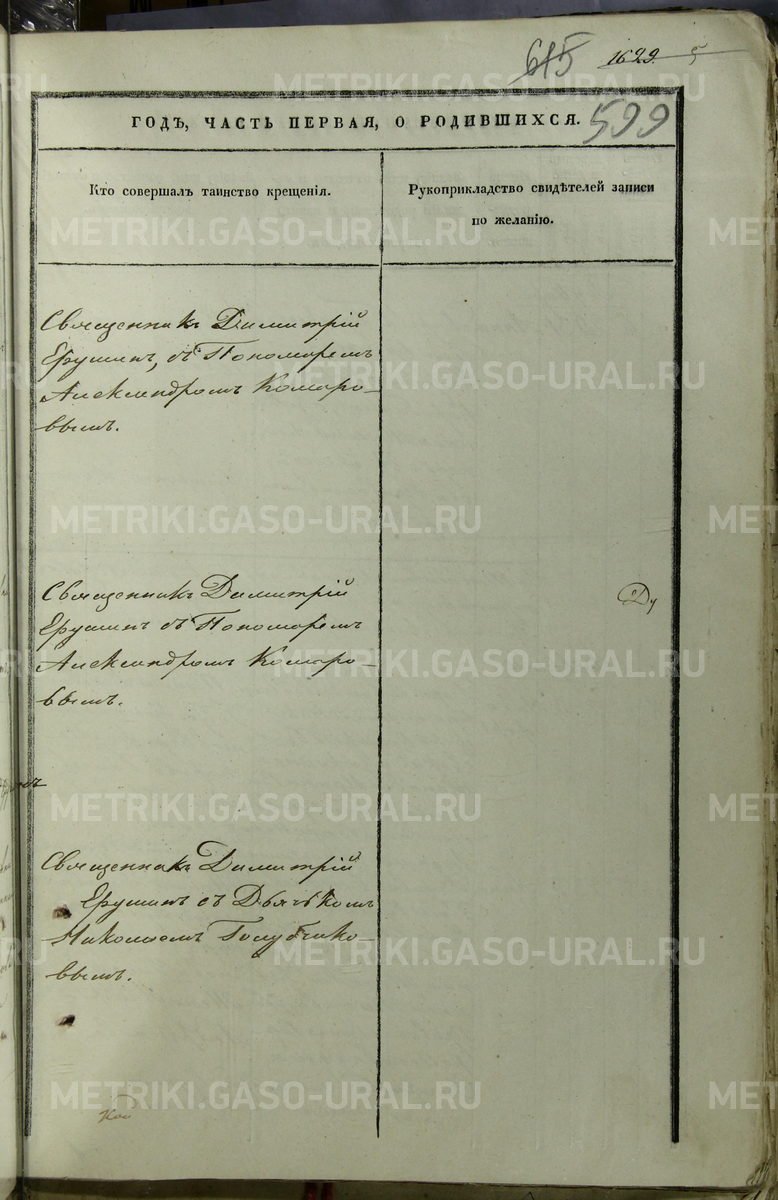 615 1629
599
ГОДЪ, ЧАСТЬ ПЕРВАЯ, О РОДИВШИХСЯ.
Кто совершалъ таинство крещенія.
Рукоприкладство свидѣтелей записи
по желанію.
Священникъ Димитрій
Ерушинъ, съ Пономаремъ
Александромъ Комаро-
вымъ.
Священникъ Димитрій
Ерушинъ съ Пономаремъ
Александромъ Комаро-
вымъ.
Священникъ Димитрій
Ерушинъ съ Дьячкомъ
Николаемъ Голубчико-
вымъ.
METRIKI.GASO-URAL.RU